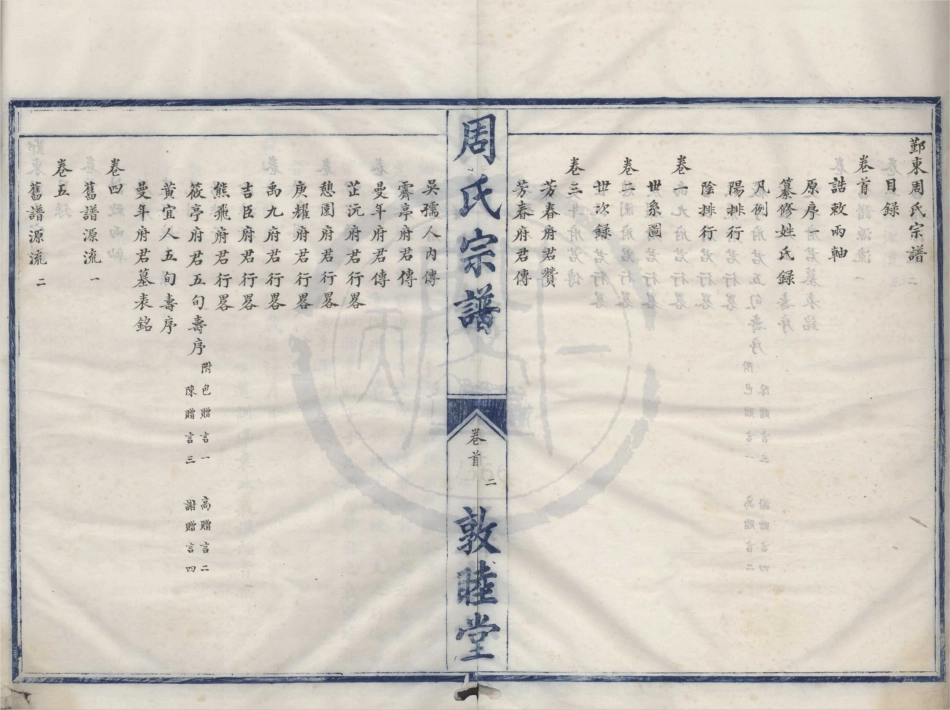 鄞東周氏宗譜二
目録
卷首
誥敕兩軸
原序一
纂修姓氏録
凡例
陽排行
陰排行
卷一
世系圖
卷二
世次録
卷三
芳春府君贊
芳春府君傳
周氏宗譜
卷首
二
敦睦堂
吳孺人内傳
霽亭府君傳
曼年府君傳
芷沅府君行畧
憩園府君行畧
庚耀府君行畧
禹九府君行畧
吉臣府君行畧
熊飛府君行畧
筱亭府君五旬壽序
附包贈言一 高贈言二
陳贈言三 謝贈言四
黄宜人五旬壽序
曼年府君墓表銘
卷四
舊譜源流一
卷五
舊譜源流二